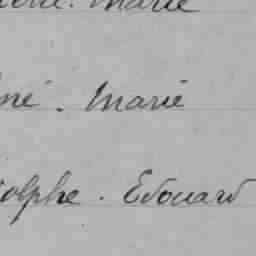 Marie
né. Marie
olphe. Edouard